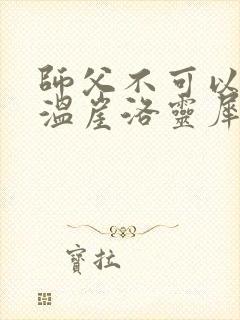 師父不可以
溫崖洛靈犀
寶拉